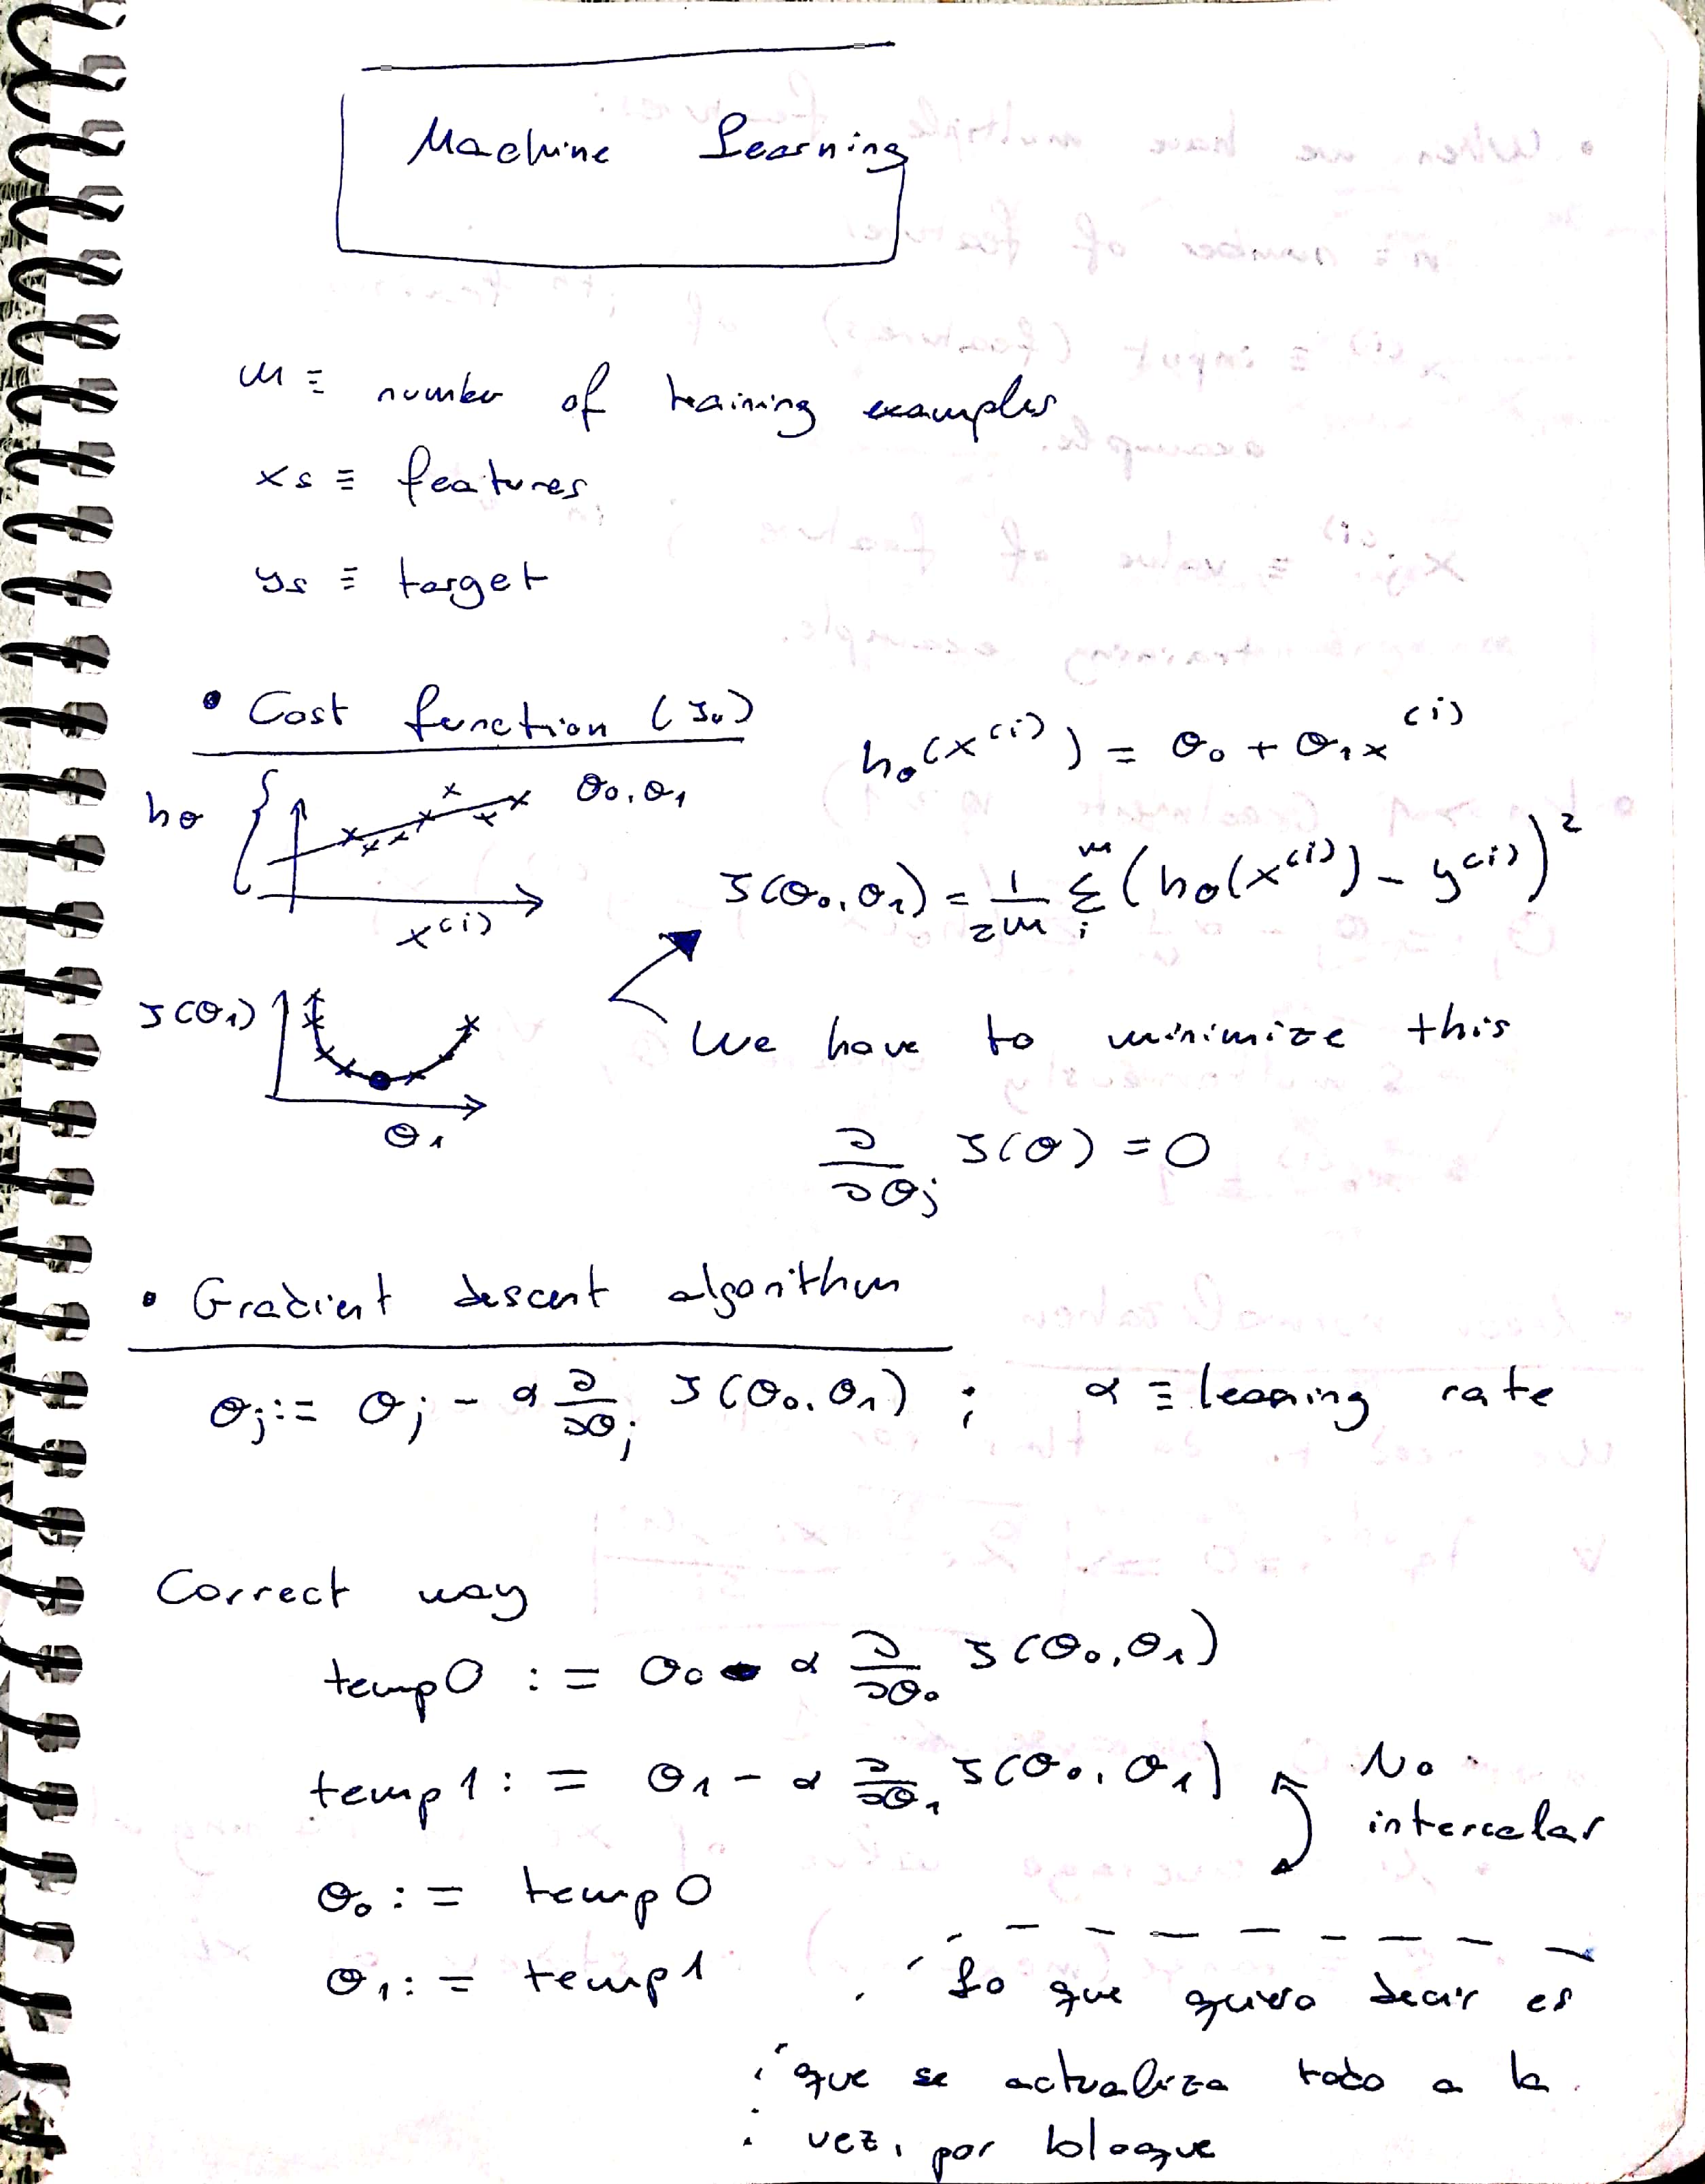 Machine Learning
m ≡ number of training examples
xs ≡ features
ys ≡ target
• Cost function (J₀)
hθ(x⁽ⁱ⁾) = θ₀ + θ₁x⁽ⁱ⁾
hθ
θ₀, θ₁
x⁽ⁱ⁾
J(θ₀, θ₁) = 1/2m Σᵢᵐ (hθ(x⁽ⁱ⁾) - y⁽ⁱ⁾)²
J(θ₁)
θ₁
We have to minimize this
∂/∂θⱼ J(θ) = 0
• Gradient descent algorithm
θⱼ := θⱼ - α ∂/∂θⱼ J(θ₀, θ₁) ; α ≡ learning rate
Correct way
temp0 := θ₀ - α ∂/∂θ₀ J(θ₀, θ₁)
temp1 := θ₁ - α ∂/∂θ₁ J(θ₀, θ₁)
No
intercalar
θ₀ := temp0
θ₁ := temp1
Lo que quiero decir es
que se actualiza todo a la
vez, por bloque